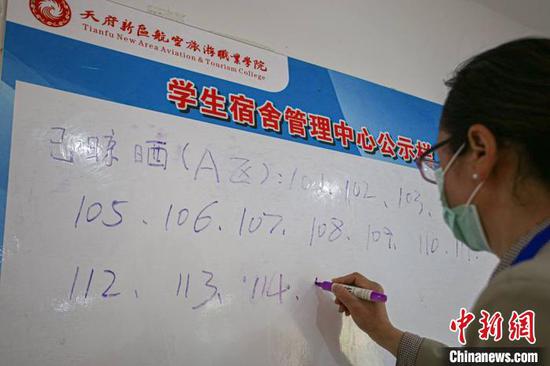 天府新区航空旅游职业学院
Tianfu New Area Aviation & Tourism College
学生宿舍管理中心公示栏
已晾晒(A区):101、102、103、
105、106、107、108、109、110、11
112、113、114、
中新网
Chinanews.com